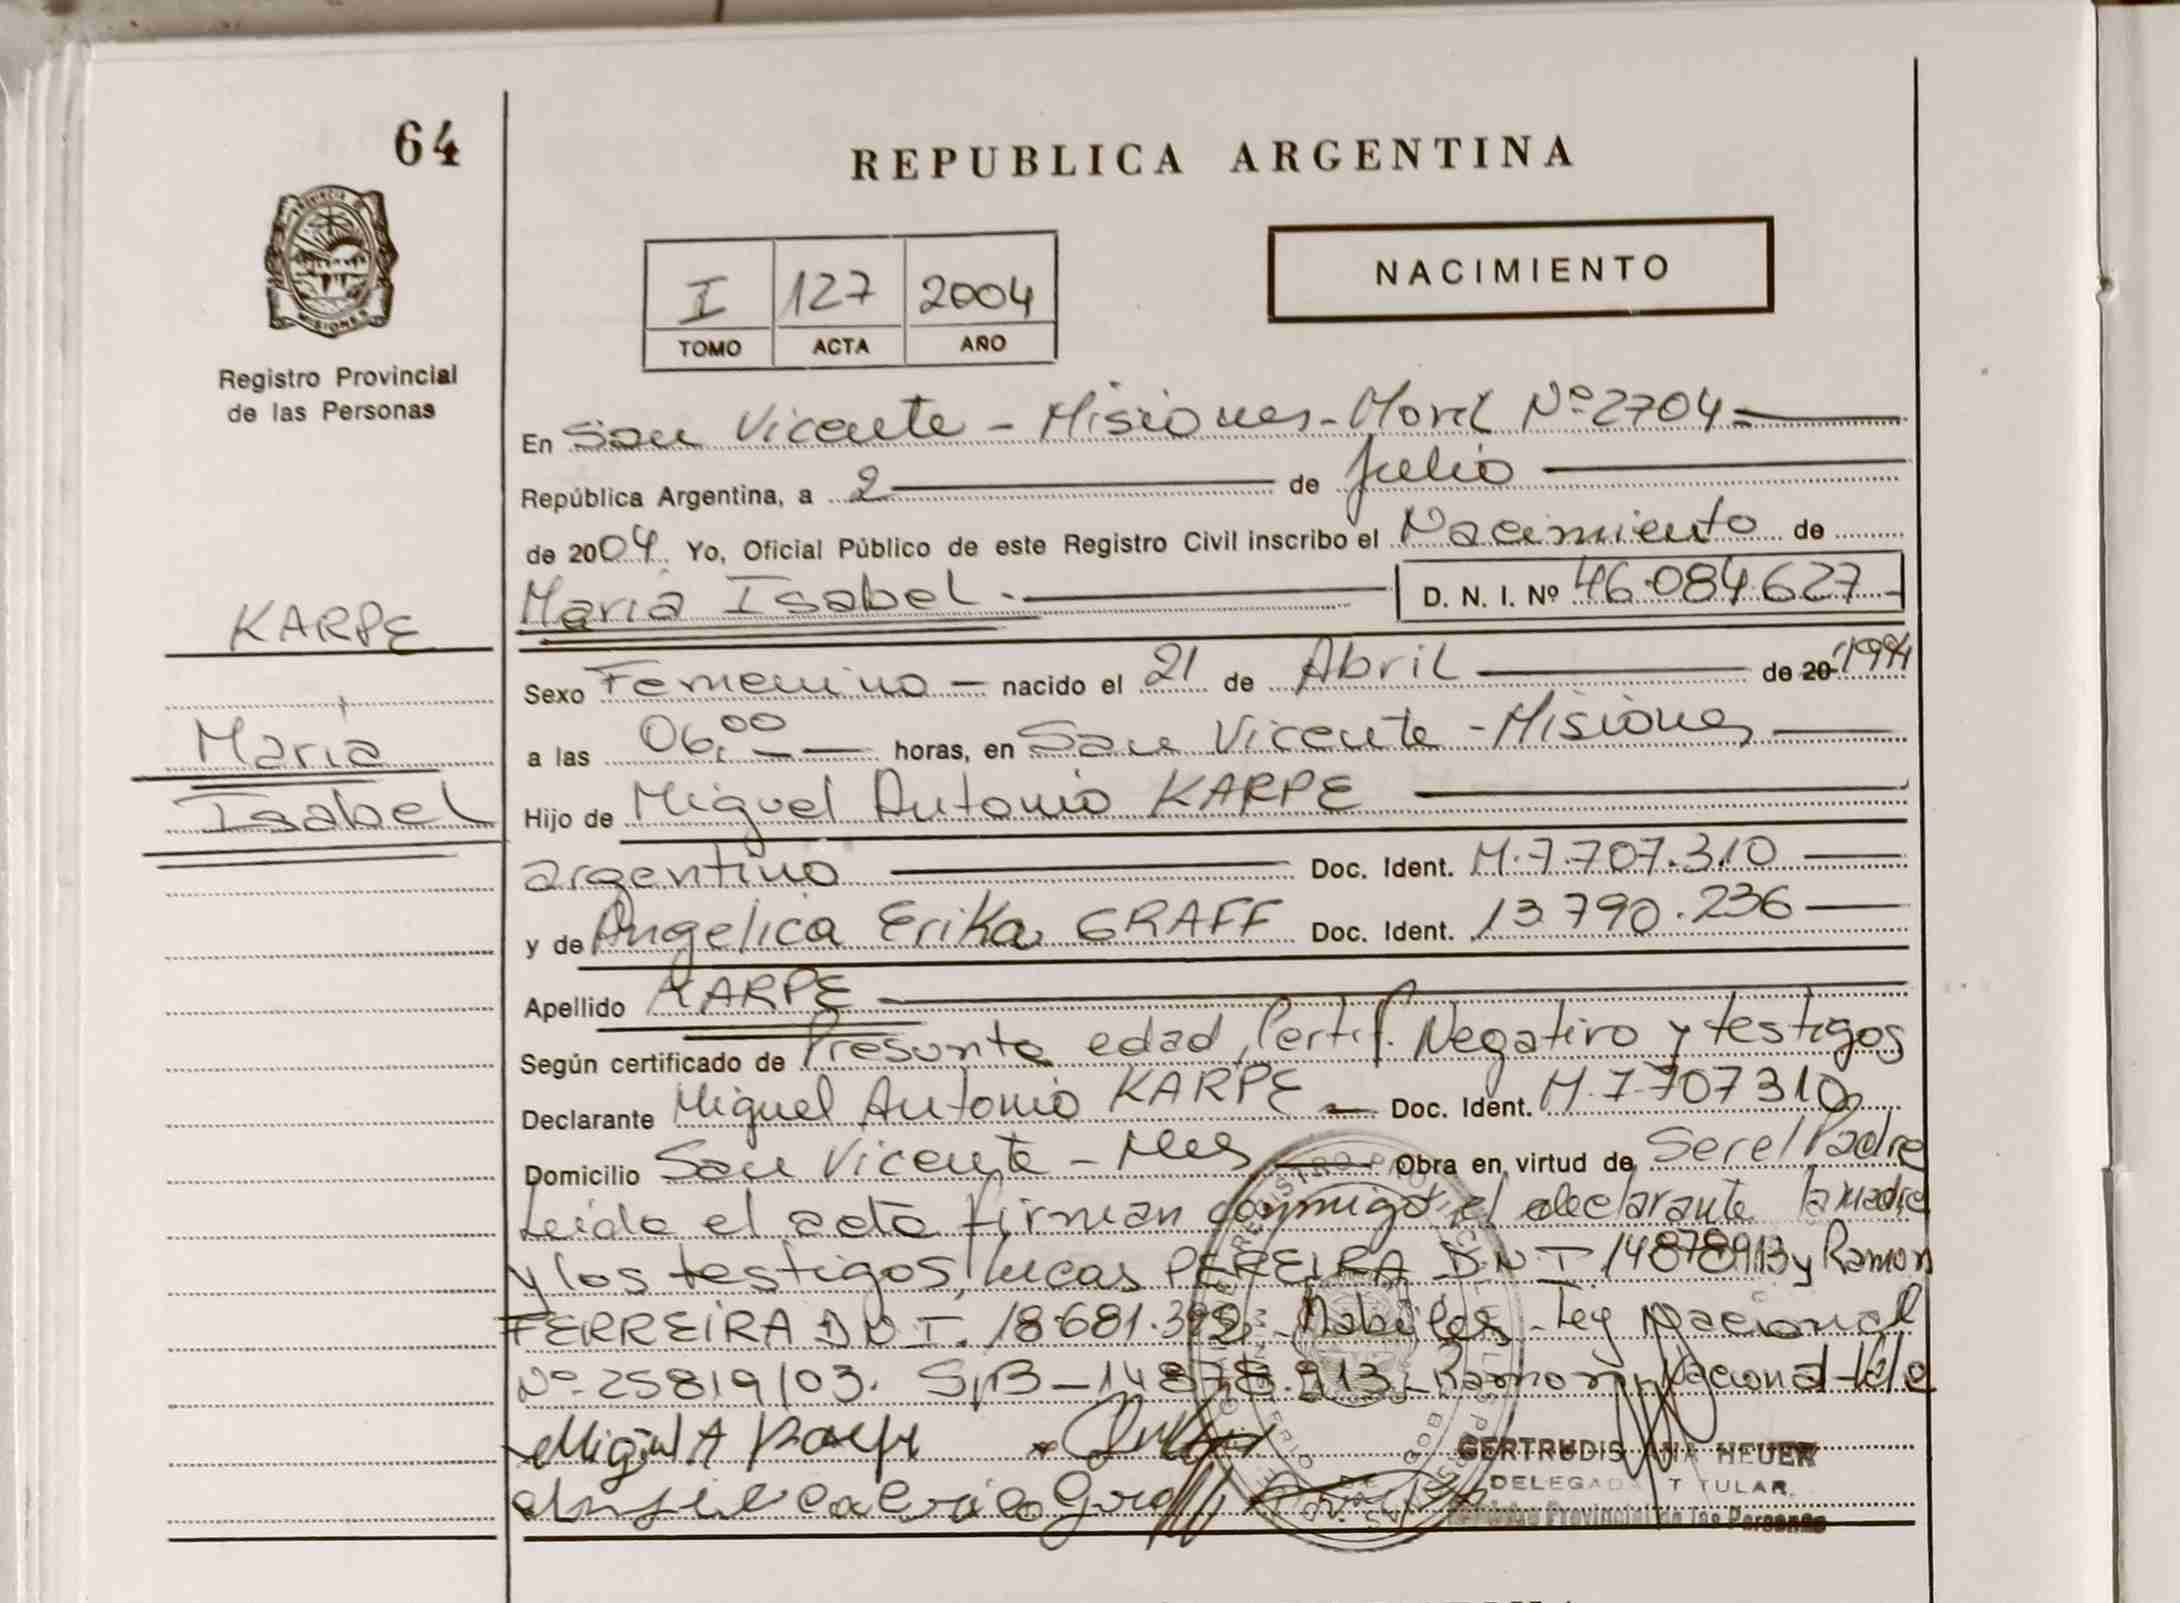 64
REPUBLICA ARGENTINA
NACIMIENTO
I 127 2004
TOMO ACTA AÑO
PROVINCIA DE
MISIONES
Registro Provincial
de las Personas
En San Vicente - Misiones - Movil Nº 2704 =
República Argentina, a 2 de Julio
de 2004 Yo, Oficial Público de este Registro Civil inscribo el Nacimiento de
Maria Isabel.- D. N. I. Nº 46.084.627-
KARPE
Maria
Isabel
Sexo Femenino - nacido el 21 de Abril de 20 1994
a las 06,00 horas, en San Vicente - Misiones
Hijo de Miguel Antonio KARPE
argentino Doc. Ident. M.7.707.310
y de Angelica Erika GRAFF Doc. Ident. 13.790.236
Apellido KARPE
Según certificado de Presunta edad, Certif. Negativo y testigos
Declarante Miguel Antonio KARPE - Doc. Ident. M.7.707310
Domicilio San Vicente - Mnes Obra en virtud de Ser el Padre
Leida el acta firman conmigo el declarante la madre
y los testigos, Lucas PEREIRA D.N.I 14878913 y Ramon
FERREIRA D.N.I. 18.681. - Ley Nacional
Nº 25819/03. S/B - 14878.913 - Ramon Nacional - Vale
Miguel A Karpe
Graff
GERTRUDIS ANA HEUER
DELEGADA TITULAR
Registro Provincial de las Personas